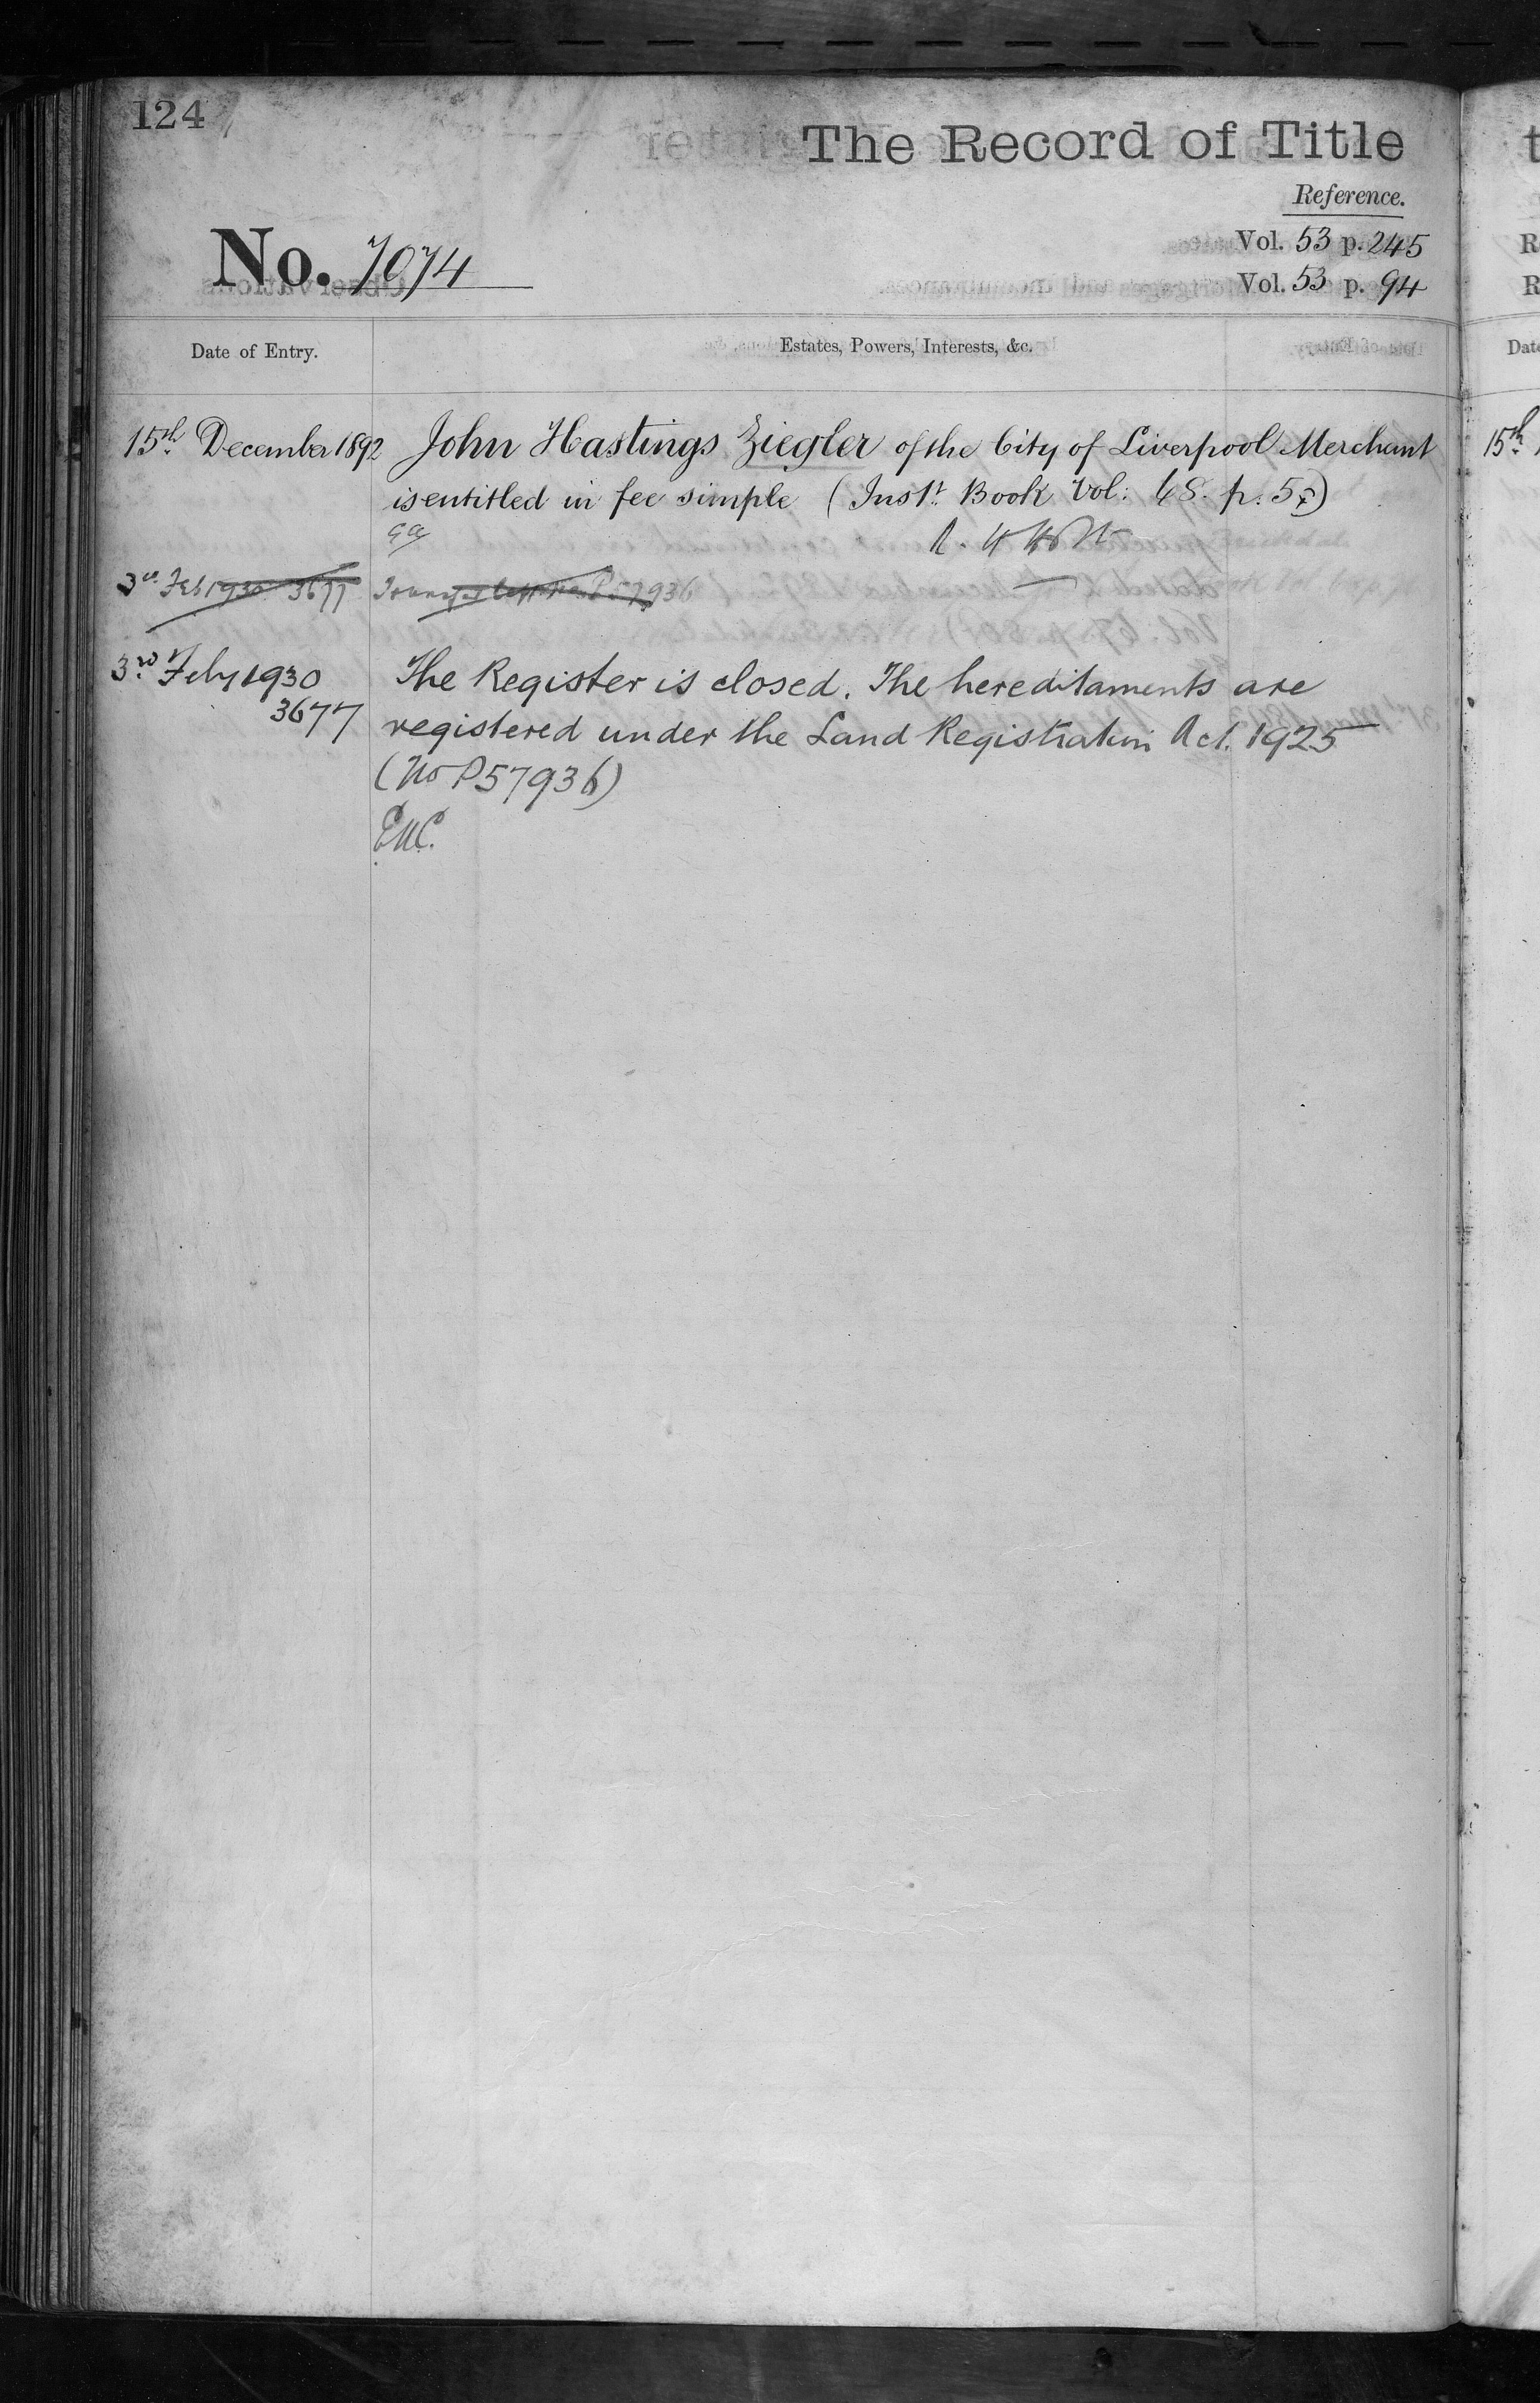 124
The Record of Title
Reference.
No. 7074
Vol. 53 p. 245
Vol. 53 p. 94
Date of Entry.
Estates, Powers, Interests, &c.
15th December 1892 John Hastings Ziegler of the City of Liverpool Merchant
is entitled in fee simple (Inst. Book Vol: 68. p.
3rd Feb 1930 3677 P57936
3rd Feby 1930 The Register is closed. The hereditaments are
3677 registered under the Land Registration Act. 1925
(No P57936)
15th